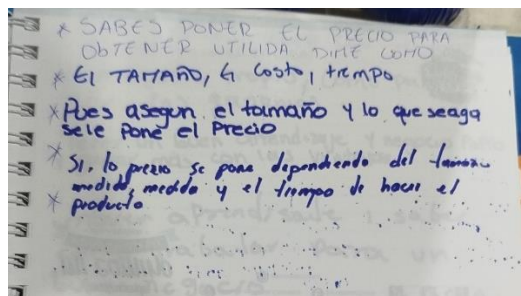 * SABES PONER EL PRECIO PARA
OBTENER UTILIDA DIME COMO
* El TAMAÑO, El Costo, tiempo
* Pues asegun el tamaño y lo que seaga
sele pone el Precio
* Si, lo prezio se pone dependiendo del tamano
medida, medida y el tiempo de hacer el
* producto